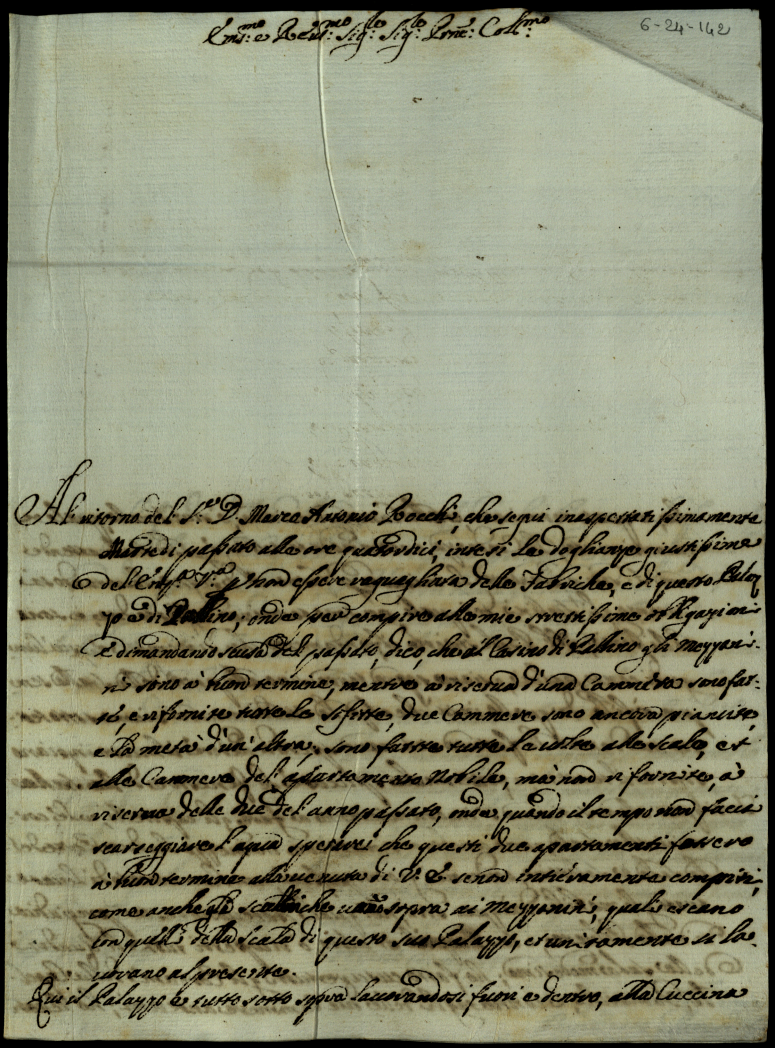 6-24-142
Em.mo e Rev.mo Sig.r Sig.r Prne: Coll.mo
Al ritorno del S.r D. Marco Antonio Rocchi, che seguì inaspettatissimamente
Martedì passato alle ore quatordici, intesi le doglianze giustissime
dell'Em.za V.ra non essere raguagliata delle Fabriche, e di questo Palaz
zo e di Pallino; onde per compire alle mie strettissime obligazioni
e dimandando scusa del passato, dico, che al Casino di Pallino gli Mezzani-
ni sono à buon termine, mentre à riserva d'una Cammera sono fat-
te, e rifornite tutte le soffitte, due Cammere sono ancora pianate,
e la metà d'un'altra; sono fatte tutte le volte alle scale, et
alle Cammere del'apartamento Nobile, mà non rifornite, à
riserva delle due del'anno passato, onde quando il tempo non facia
scarseggiare l'aqua sperarei che questi due apartamenti fossero
à buon termine alla venuta di V. E. se non intieramente compiti,
come anche gli che sopra ai Mezzanini, quali escano
con quelli della scala di questo suo Palazzo, et unitamente si la-
vorano al presente.
Qui il Palazzo è tutto sotto sopra lavorandosi fuori e dentro, alla Cuccina